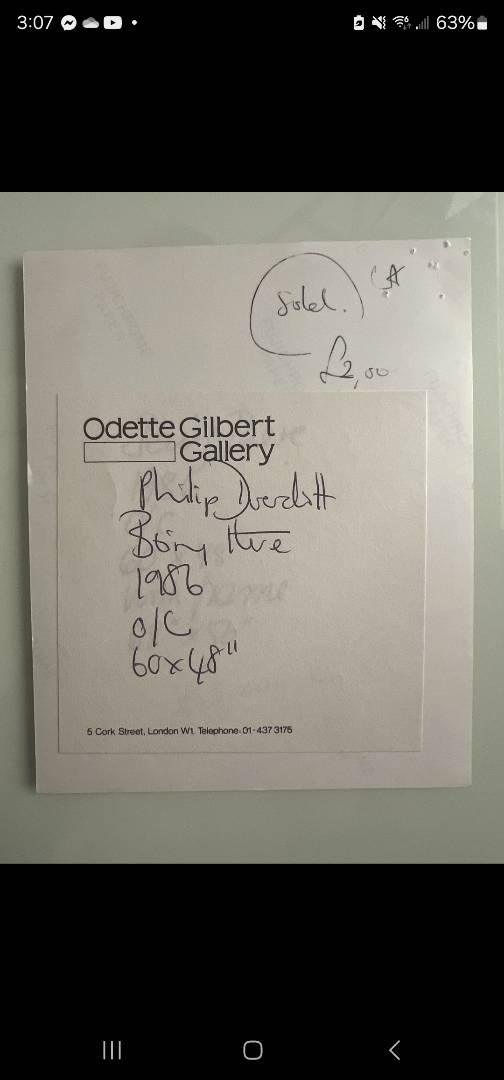 3:07
63%
Sold.
£2,00
Odette Gilbert
Gallery
Philip
Being There
1986
O/C
60x48"
5 Cork Street, London W1. Telephone: 01-437 3175